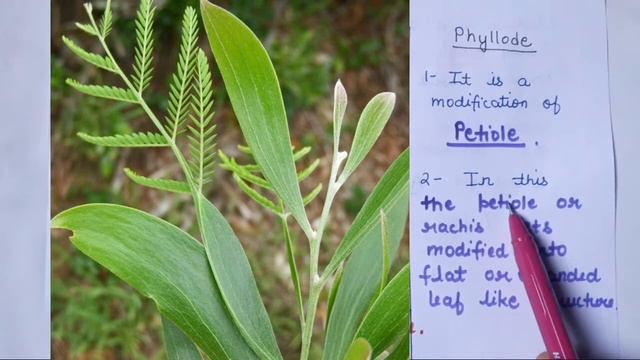 Phyllode
1- It is a
modification of
Petiole.
2- In this
the petiole or
rachis
modified
flat or
leaf like